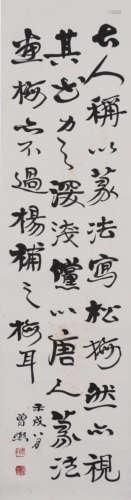 古人稱以篆法寫松柯然亦視
其出力之深淺儻以唐人篆法
畫梅亦不過楊補之梅耳
壬戌八月
曾熙